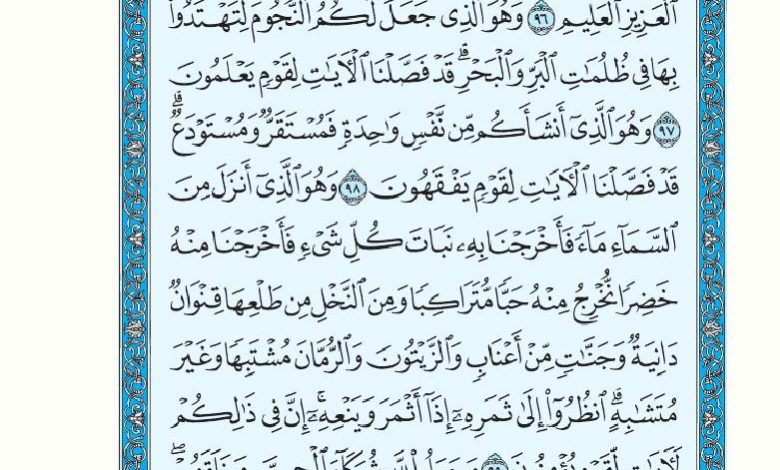 ٱلۡعَزِيزِ ٱلۡعَلِيمِ ٩٦ وَهُوَ ٱلَّذِي جَعَلَ لَكُمُ ٱلنُّجُومَ لِتَهۡتَدُواْ
بِهَا فِي ظُلُمَٰتِ ٱلۡبَرِّ وَٱلۡبَحۡرِۗ قَدۡ فَصَّلۡنَا ٱلۡأٓيَٰتِ لِقَوۡمٖ يَعۡلَمُونَ
٩٧ وَهُوَ ٱلَّذِيٓ أَنشَأَكُم مِّن نَّفۡسٖ وَٰحِدَةٖ فَمُسۡتَقَرّٞ وَمُسۡتَوۡدَعٞۗ
قَدۡ فَصَّلۡنَا ٱلۡأٓيَٰتِ لِقَوۡمٖ يَفۡقَهُونَ ٩٨ وَهُوَ ٱلَّذِيٓ أَنزَلَ مِنَ
ٱلسَّمَآءِ مَآءٗ فَأَخۡرَجۡنَا بِهِۦ نَبَاتَ كُلِّ شَيۡءٖ فَأَخۡرَجۡنَا مِنۡهُ
خَضِرٗا نُّخۡرِجُ مِنۡهُ حَبّٗا مُّتَرَاكِبٗا وَمِنَ ٱلنَّخۡلِ مِن طَلۡعِهَا قِنۡوَانٞ
دَانِيَةٞ وَجَنَّٰتٖ مِّنۡ أَعۡنَابٖ وَٱلزَّيۡتُونَ وَٱلرُّمَّانَ مُشۡتَبِهٗا وَغَيۡرَ
مُتَشَٰبِهٍۗ ٱنظُرُوٓاْ إِلَىٰ ثَمَرِهِۦٓ إِذَآ أَثۡمَرَ وَيَنۡعِهِۦٓۚ إِنَّ فِي ذَٰلِكُمۡ
لَأٓيَٰتٖ لِّقَوۡمٖ يُؤۡمِنُونَ ٩٩ وَجَعَلُواْ لِلَّهِ شُرَكَآءَ ٱلۡجِنَّ وَخَلَقَهُمۡۖ